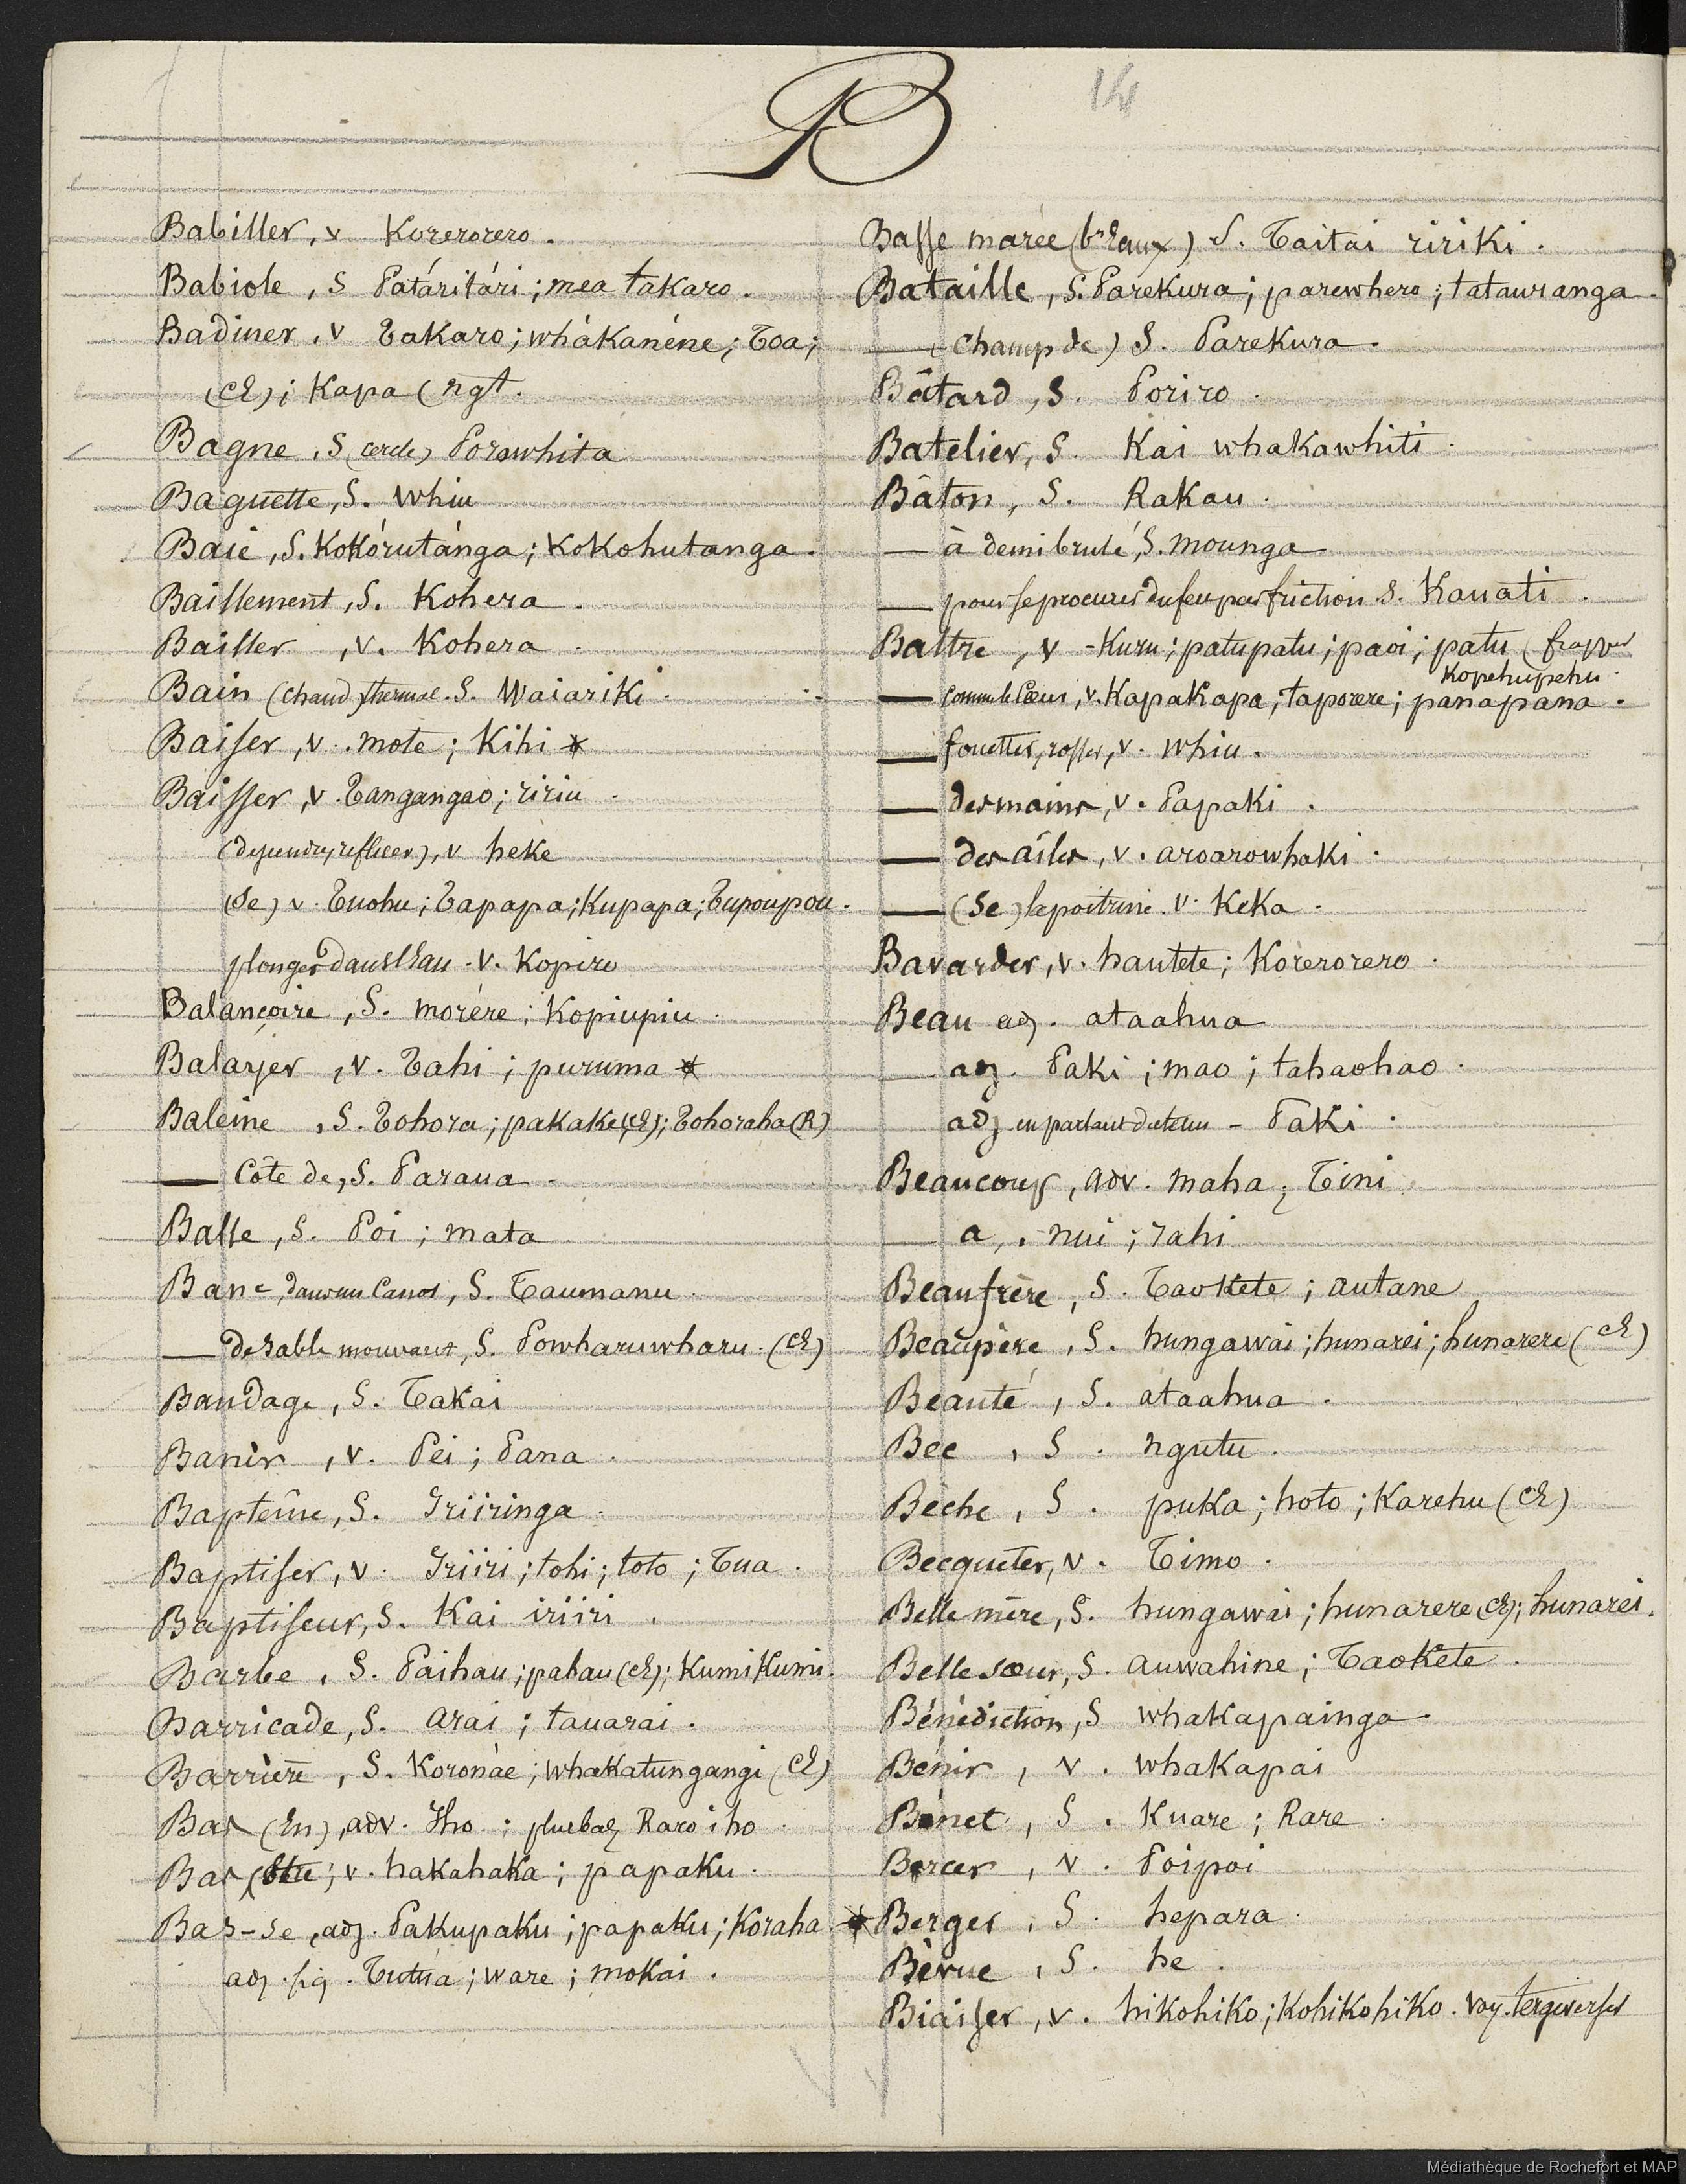 B
14
Babiller, v Korerorero.
Babiole, S Patáritári; mea takaro.
Badiner, v Takaro; whákanéne; Toa;
(cE); Kapa (ngt.
Bagne, S (cercle) Porowhita
Baguette, S. Whiu
Baie, S. Kokórutánga; Kokohutanga.
Baillement, S. Kohera.
Bailler, v. Kohera.
Bain (chaud, thermal. S. Waiariki.
Baiser, v. mote; Kihi *
Baisser, v. Tangangao; ririu.
v heke
(Se) v. Tuohu; Tapapa; Kupapa; Tupoupou.
plonger dans l'Eau. v. Kopiro
Balançoire, S. morére; Kopiupiu.
Balayer, v. Tahi; puruma *
Baleine, S. Tohora; pakake(cE); Tohoraha(R)
— Côte de, S. Paraua.
Balle, S. Poi; mata
Banc, dans un Canot, S. Taumanu.
— de sable mouvant, S. Powharuwharu. (cE)
Bandage, S. Takai
Banir, v. Pei; Pana.
Baptême, S. Iriiringa.
Baptiser, v. Iriiri; tohi; toto; Tua.
Baptiseur, S. Kai iriiri.
Barbe, S. Paihau; pahau (cE); KumiKumi.
Barricade, S. Arai; tauarai.
Barrière, S. Koronàe; whakatungangi (cE)
Bas (En), adv. Iho; plus bas, Raro iho.
Bas v. hakahaka; papaku.
Bas-se, adj. Pakupaku; papaku; Koraha
adj. fig. Tutua; ware; mokai.
Basse marée (bses Eaux) S. Taitai ririki.
Bataille, S. Parekura; parewhero; tatauranga.
— (Champ de) S. Parekura.
Bâtard, S. Poriro.
Batelier, S. Kai whakawhiti.
Bâton, S. Rakau.
— à demi brulé, S. mounga
— pour se procurer du feu par friction S. Kauati.
Battre, v - Kuru; patupatu; paoi; patu (frapper
Kopehupehu.
— comme le Cœur, v. Kapakapa; taporere; panapana.
— fouetter, rosser, v. whiu.
— des mains, v. Papaki.
— des aîles, v. aroarowhaki.
— (Se) la poitrine. v. Keka.
Bavarder, v. hautete; Korerorero.
Beau adj. ataahua
adj. Paki; mao; tahaohao.
adj en parlant du tems - Paki.
Beaucoup, adv. maha; Tini
a,. nui; rahi
Beaufrère, S. Taokete; autane
Beaupère, S. hungawai; hunarei; hunarere (cE)
Beauté, S. ataahua.
Bec, S. ngutu.
Bèche, S. puka; hoto; Karehu (cE)
Becqueter, v. Timo.
Belle mère, S. hungawai; hunarere (cE); hunarei.
Belle sœur, S. auwahine; Taokete.
Bénédiction, S whakapainga.
Bénir, v. whakapai
Benet, S. Kuare; Rare.
Bercer, v. Poipoi
* Berger, S. hepara.
Bèvue, S. he.
Biaiser, v. hikohiko; Kohikohiko. voy. tergiverser
Médiathèque de Rochefort et MAP